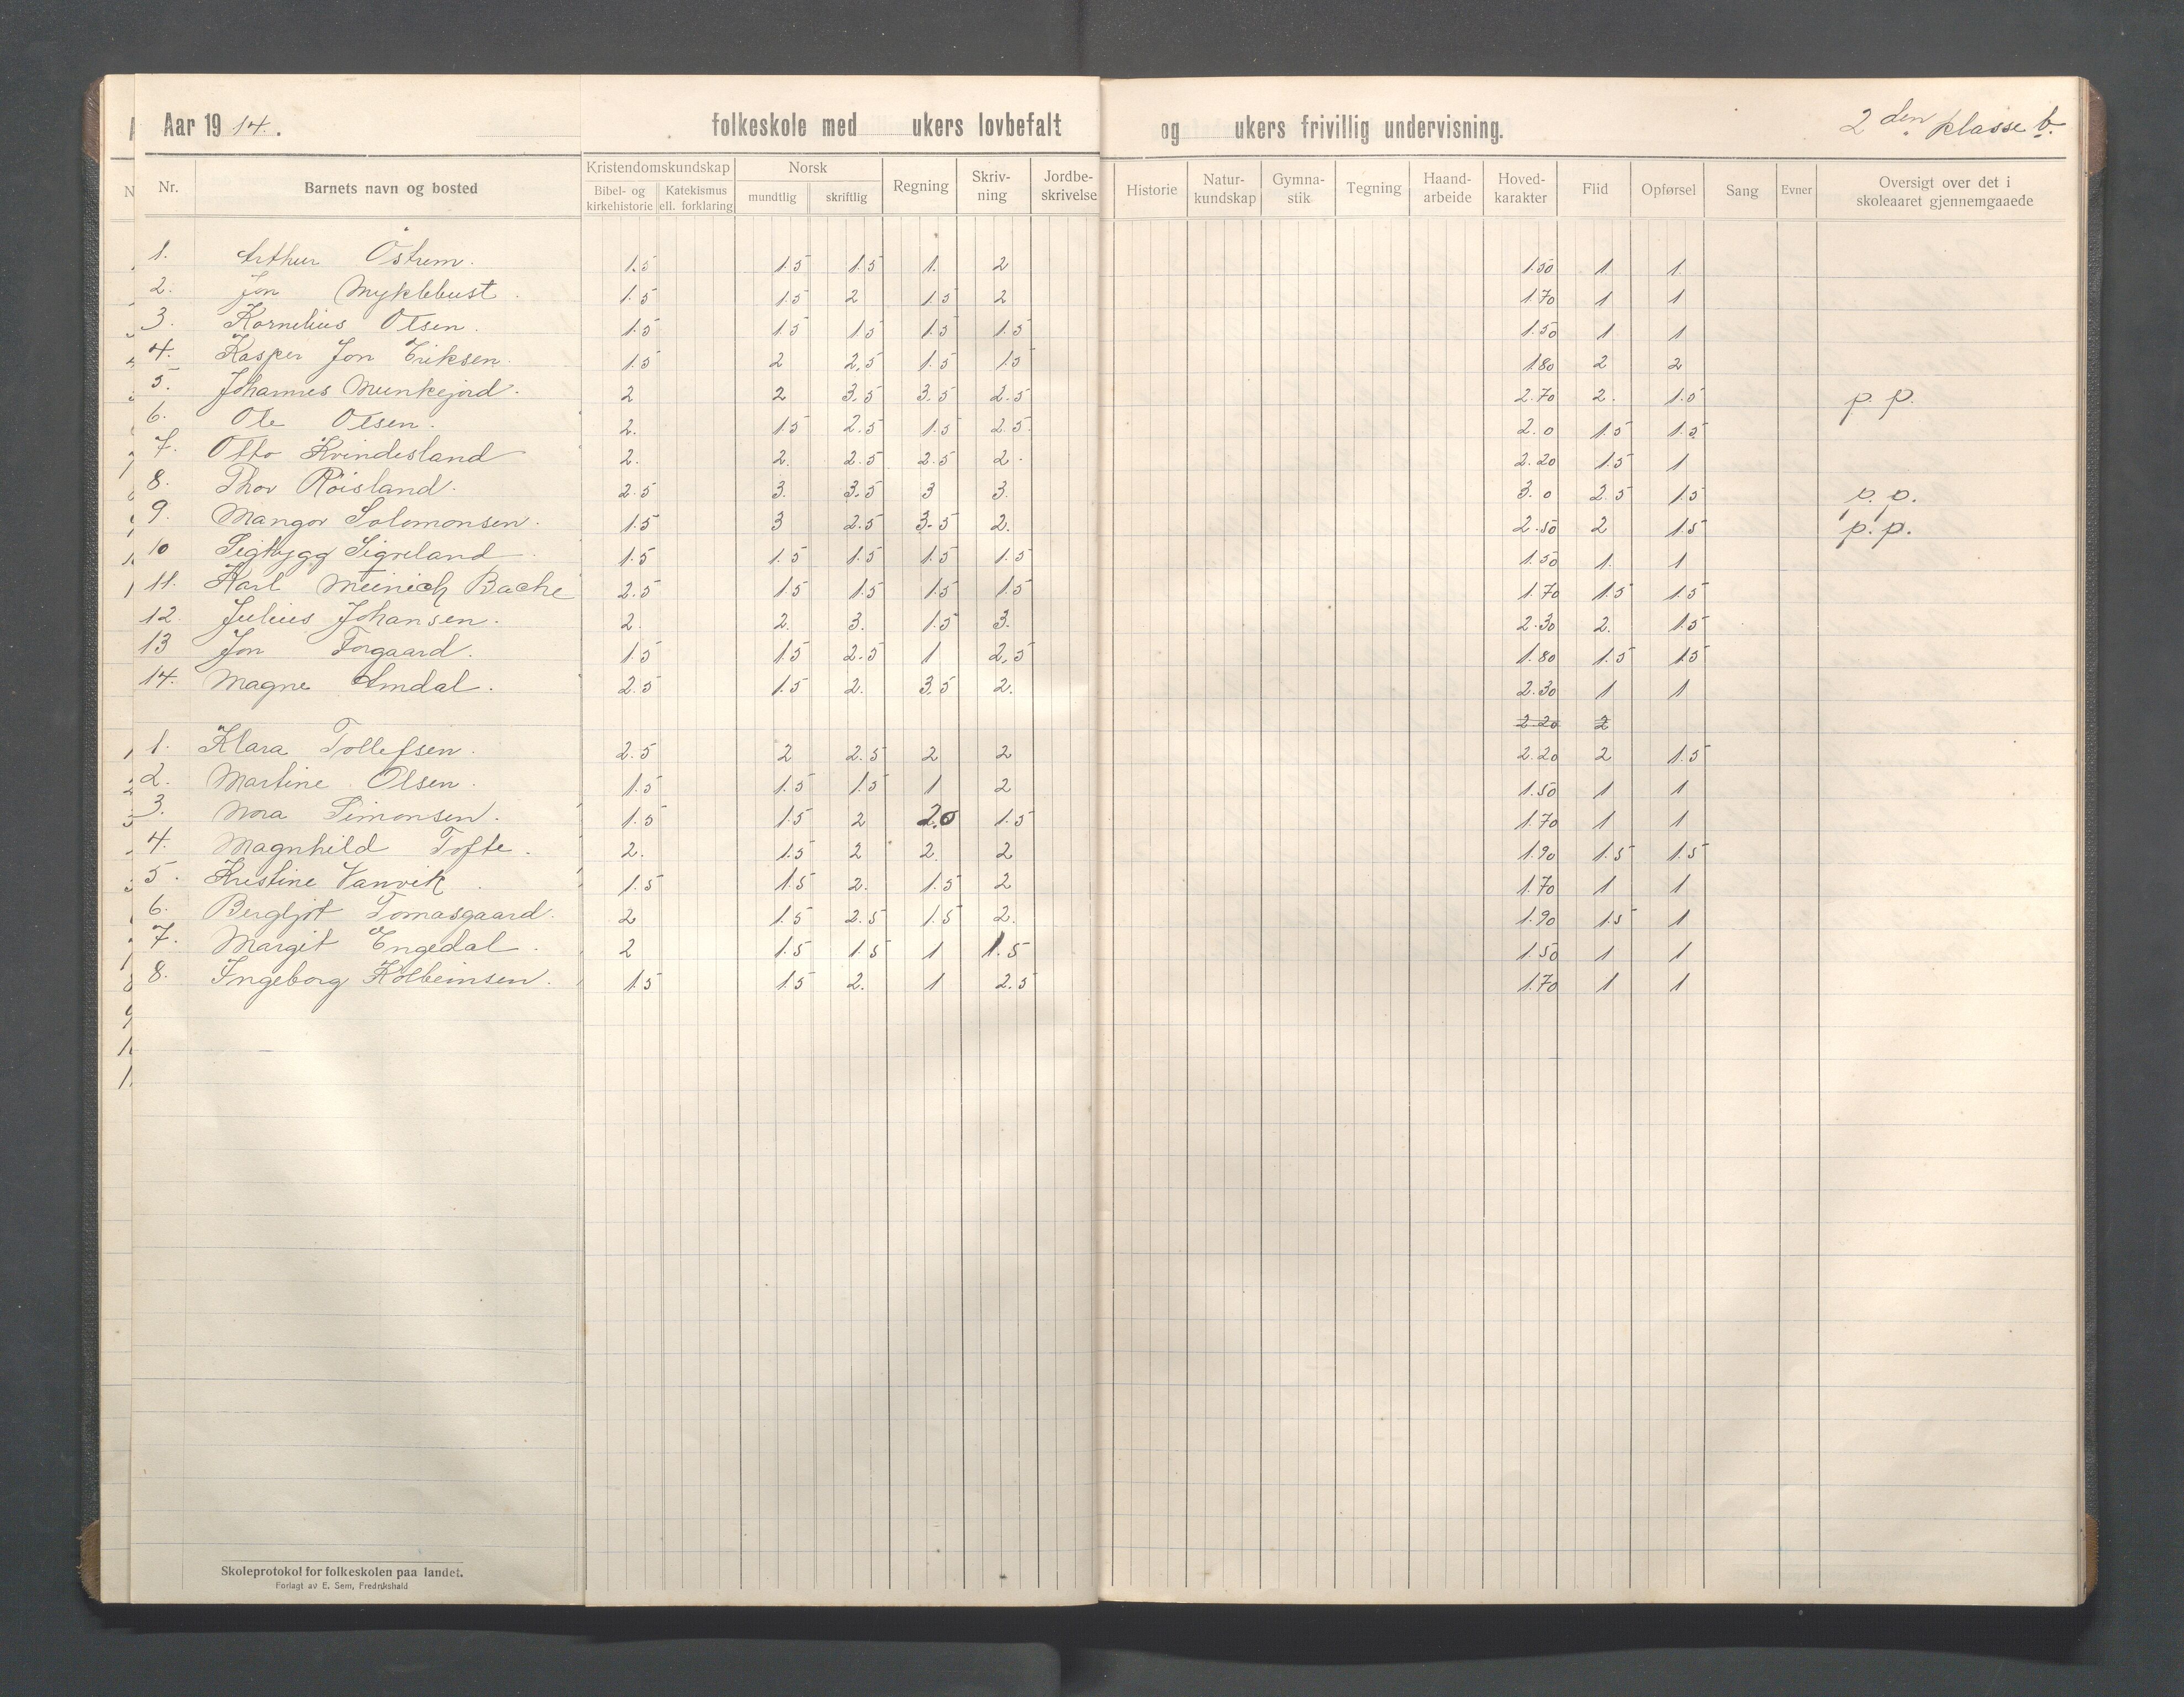 Aar 1914. folkeskole med ukers lovbefalt og ukers frivillig undervisning. 2 den klasse b.
Nr. Barnets navn og bosted Kristendomskundskap Bibel- og kirkehistorie Katekismus ell. forklaring Norsk mundtlig skriftlig Regning Skriv-ning Jordbe-skrivelse Historie Natur-kundskap Gymna-stik Tegning Haand-arbeide Hoved-karakter Flid Opførsel Sang Evner Oversigt over det i skoleaaret gjennemgaaede
1. Arthur Östrem. 1.5 1.5 1.5 1. 2 1.50 1 1
2. Jon Myklebust. 1.5 1.5 2 1.5 2 1.70 1 1
3. Kornelius Olsen. 1.5 1.5 1.5 1.5 1.5 1.50 1 1
4. Kasper Jon Eriksen. 1.5 2 2,5 1.5 1.5 1.80 2 2
5. Johannes Munkejord. 2 2 3,5 3.5 2.5 2.70 2. 1.5 p. p.
6. Ole Olsen. 2. 1.5 2.5 1.5 2.5 2.0 1.5 1.5
7. Otto Kvindesland 2. 2. 2.5 2.5 2. 2.20 1.5 1
8. Thor Röisland. 2.5 3. 3.5 3 3. 3.0 2.5 1.5 p. p.
9. Mangor Solomonsen. 1.5 3 2.5 3.5 2. 2.50 2 1.5 p.p.
10 Sigtrygg Sigveland. 1.5 1.5 1.5 1.5 1.5 1.50 1. 1
11. Karl Meinich Bache 2.5 1.5 1.5 1.5 1.5 1.70 1.5 1.5
12. Julius Johansen. 2. 2. 3. 1.5 3. 2.30 2. 1.5
13 Jon Torgaard. 1.5 1.5 2.5 1 2,5 1.80 1.5 1.5
14. Magne Amdal. 2.5 1.5 2. 3.5 2. 2.30 1 1
2.20 2
1. Klara Tollefsen. 2.5 2 2.5 2 2 2.20 2 1.5
2. Martine Olsen. 1.5 1.5 1.5 1 2 1.50 1 1
3. Nora Simonsen. 1.5 1.5 2 2.0 1.5 1.70 1 1
4. Magnhild Tofte. 2. 1.5 2 2. 2 1.90 1.5 1.5
5. Kristine Vanvik. 1.5 1.5 2. 1.5 2 1.70 1 1
6. Bergljot Tomasgaard. 2 1.5 2.5 1.5 2. 1.90 1.5 1
7. Margit Engedal. 2 1.5 1.5 1 1.5 1.50 1 1
8. Ingeborg Kolbeinsen. 1.5 1.5 2. 1 2.5 1.70 1 1
Skoleprotokol for folkeskolen paa landet.
Forlagt av E. Sem, Fredrikshald